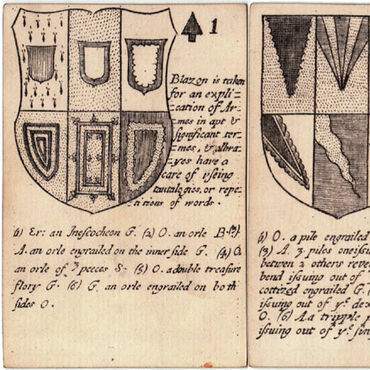 1
Blazon is taken
for an expli=
cation of Ar=
mes in apt &
significant ter=
=mes, &
yes have a
care of vseing
tautalogies, or repe=
titions of words.
(1) Er: an Inescocheon G. (2) O. an orle B. (3)
A. an orle engrailed on the inner side G. (4) G
an orle of 7 peeces S: (5) O. a double treasure
flory G. (6) G. an orle engrailed on both
sides O.
(1) O. a pile engrailed
(2) A. 3 piles
betwen 2 others
bend issuing out of
cottized engrailed G.
issuing out of yᵉ
O. (6) A. a tripple
issuing out of yᵉ